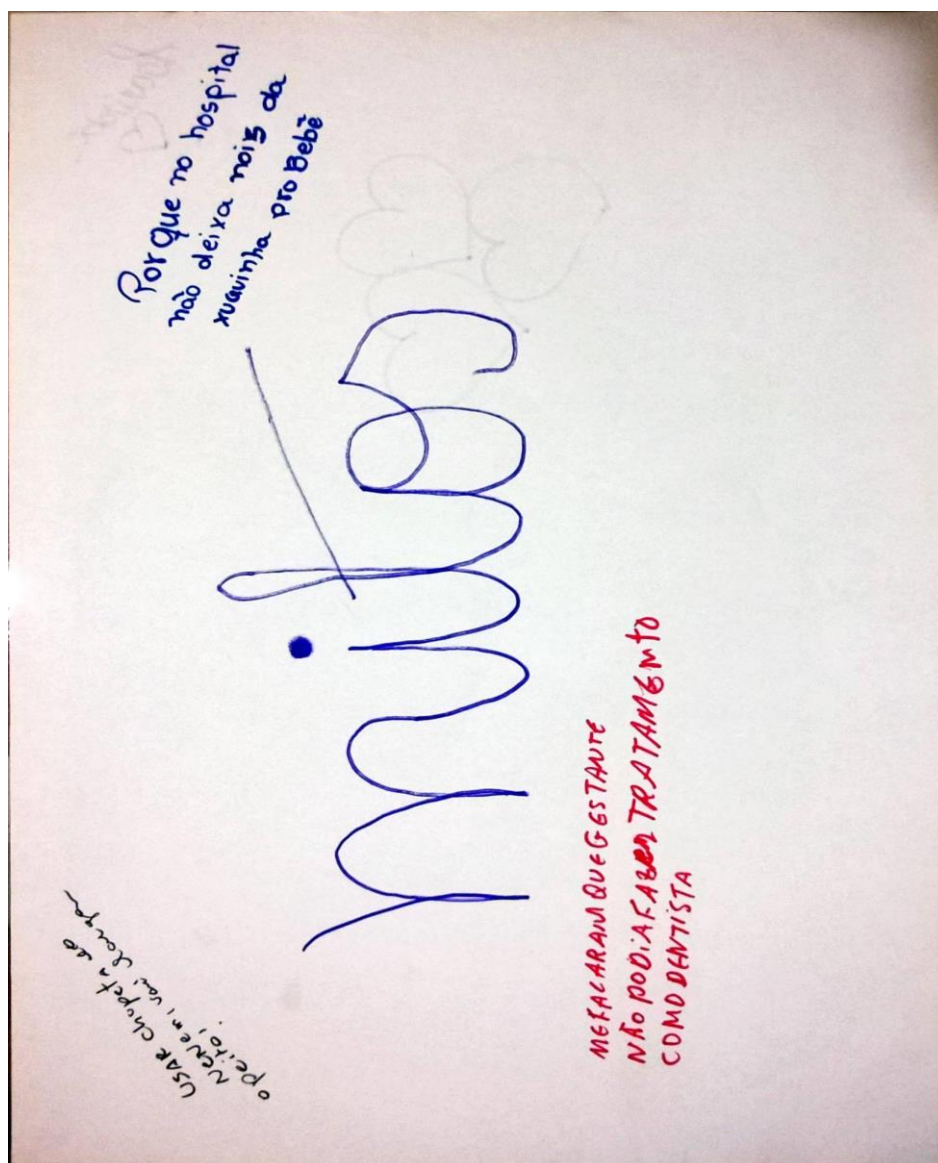 Porque no hospital
não deixa noiz da
xuquinha pro Bebê
mitos
USAR chupeta eo
NENem, vai
o peito,
MEFALARAM QUE GESTANTE
NÃO PODIA FAZER TRATAMENTO
COMO DENTISTA